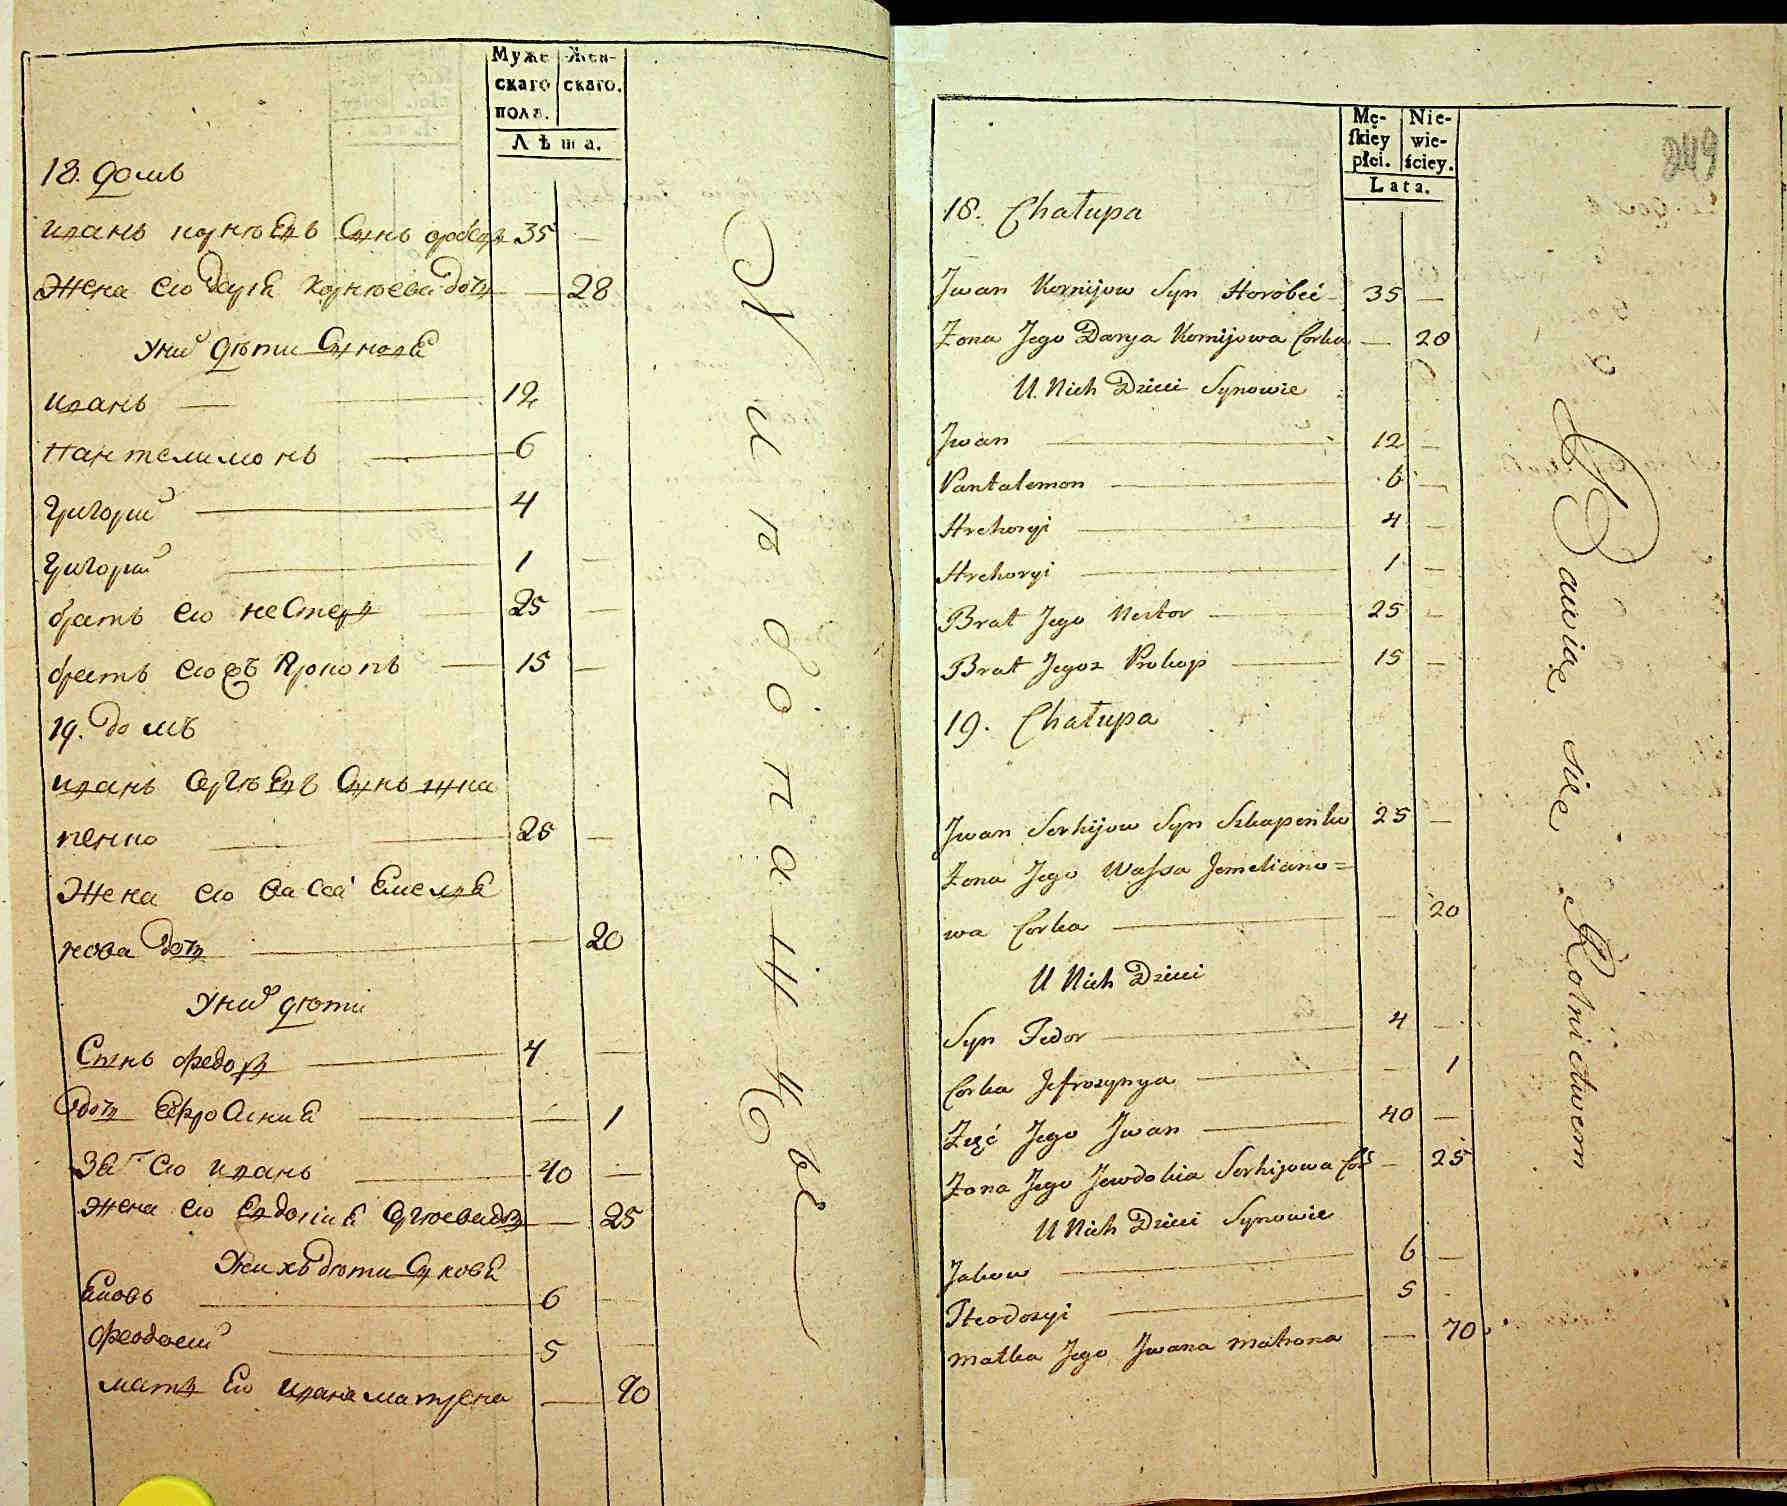 Муже
скаго
пола.
Жен-
скаго.
Лѣта.
18. домъ
иванъ корнѣевъ Сынъ 35 —
Жена его Дарія корнѣева Дочь — 28
У них дѣти Сыновя
иванъ — 12
пантелимонъ — 6
григорий — 4
григорий — 1 —
братъ его нестеръ — 25 —
братъ его Прокопъ — 15 —
19. домъ
иванъ Сергѣевъ Сынъ шка
пенко — 25 —
Жена его Васса Емелья
нова Дочь — 20
У них дѣти
Сынъ Федоръ — 4 —
Дочь Ефросиния — 1
Зять его иванъ — 40 —
жена его Евдокия Сергѣева дочь — 25
У нихъ дѣти Сыновя
Яковъ — 6 —
феодосий — 5 —
мать Его ивана матрена — 70
Mę-
ſkiey
płci.
Nie-
wie-
ściey.
Lata.
249
18. Chałupa
Jwan Kornijow Syn Horobeć 35 —
Żona Jego Darya Kornijowa Corka — 28
U Nich Dzieci Synowie
Jwan — 12 —
Pantalemon — 6 —
Hrehoryi — 4 —
Hrehoryi — 1 —
Brat Jego Nestor — 25 —
Brat Jegoz Prokop — 15 —
19. Chałupa
Jwan Serhijow Syn Szkapenko 25 —
Żona Jego Wassa Jemeliano=
wa Corka — 20
U Nich Dzieci
Syn Fedor — 4 —
Corka Jefrozynya — 1
Zięć Jego Jwan — 40 —
Żona Jego Jewdokia Serhijowa Cor — 25
U Nich Dzieci Synowie
Jakow — 6 —
Fteodozyi — 5 -
Matka Jego Jwana Matrona — 70
Bawią się Rolnictwem